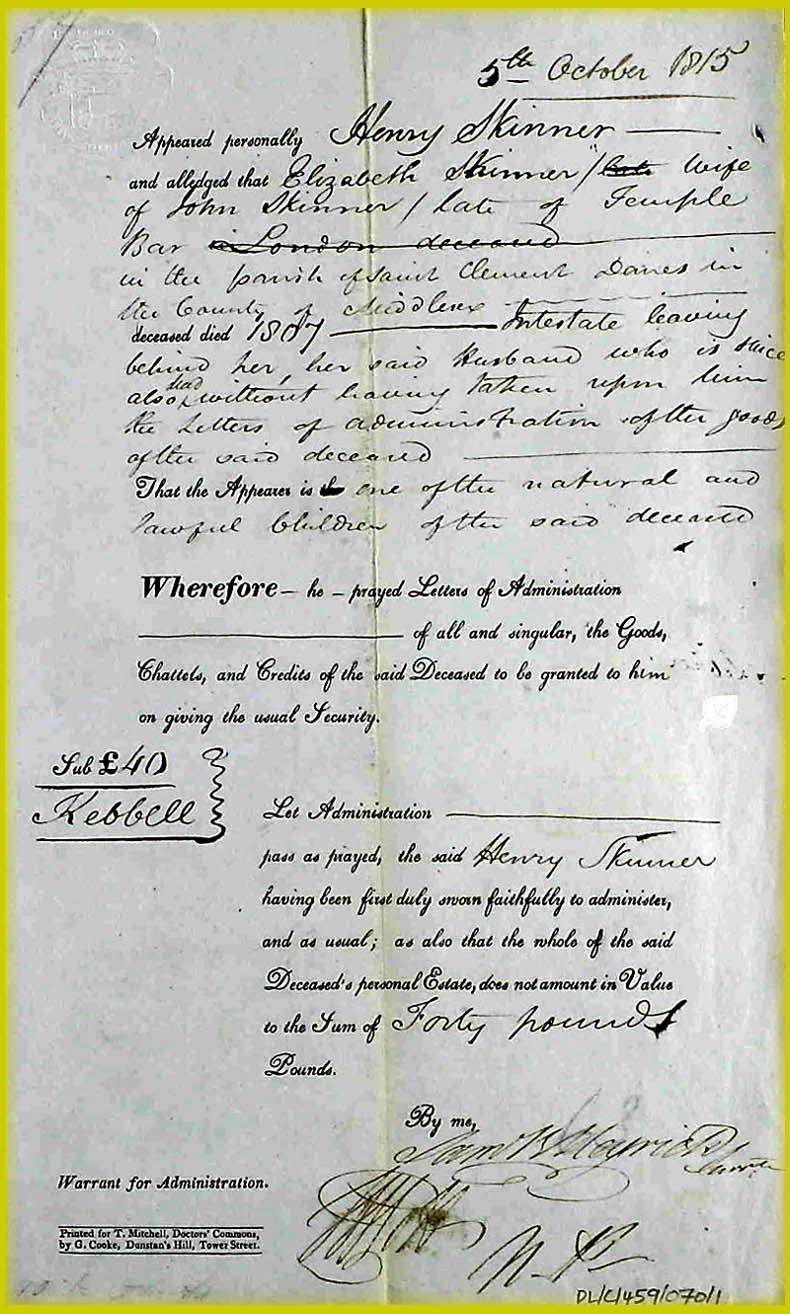 5th October 1815
Appeared personally Henry Skinner
and alledged that Elizabeth Skinner / late Wife
of John Skinner / late of Temple
Bar in London deceased
in the parish of Saint Clement Danes in
the County of Middlesex
deceased died 1807 Intestate leaving
behind her, her said Husband who is since
also dead without having taken upon him
the Letters of administration of the goods
of the said deceased
That the Appearer is one of the natural and
lawful Children of the said deceased
Wherefore – he – prayed Letters of Administration
of all and singular, the Goods,
Chattels, and Credits of the said Deceased to be granted to him
on giving the usual Security.
Sub £40
Kebbell
Let Administration
pass as prayed, the said Henry Skinner
having been first duly sworn faithfully to administer,
and as usual; as also that the whole of the said
Deceased's personal Estate, does not amount in Value
to the Sum of Forty pounds
Pounds.
By me,
Warrant for Administration.
Printed for T. Mitchell, Doctors' Commons,
by G. Cooke, Dunstan's Hill, Tower Street.
N.P.
DL/C/459/070/1